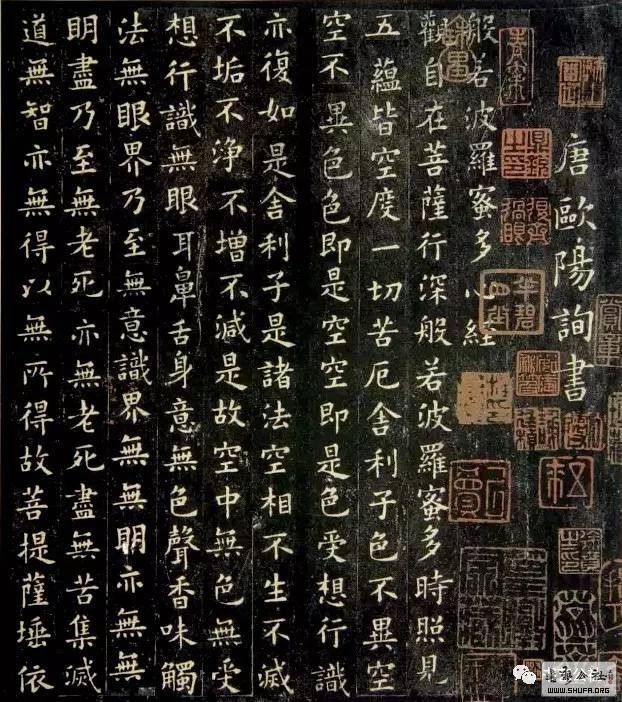 唐歐陽詢書
般若波羅蜜多心經
觀自在菩薩行深般若波羅蜜多時照見
五蘊皆空度一切苦厄舍利子色不異空
空不異色色即是空空即是色受想行識
亦復如是舍利子是諸法空相不生不滅
不垢不浄不增不減是故空中無色無受
想行識無眼耳鼻舌身意無色聲香味觸
法無眼界乃至無意識界無無明亦無無
明盡乃至無老死亦無老死盡無苦集滅
道無智亦無得以無所得故菩提薩埵依
WWW.SHUFA.ORG